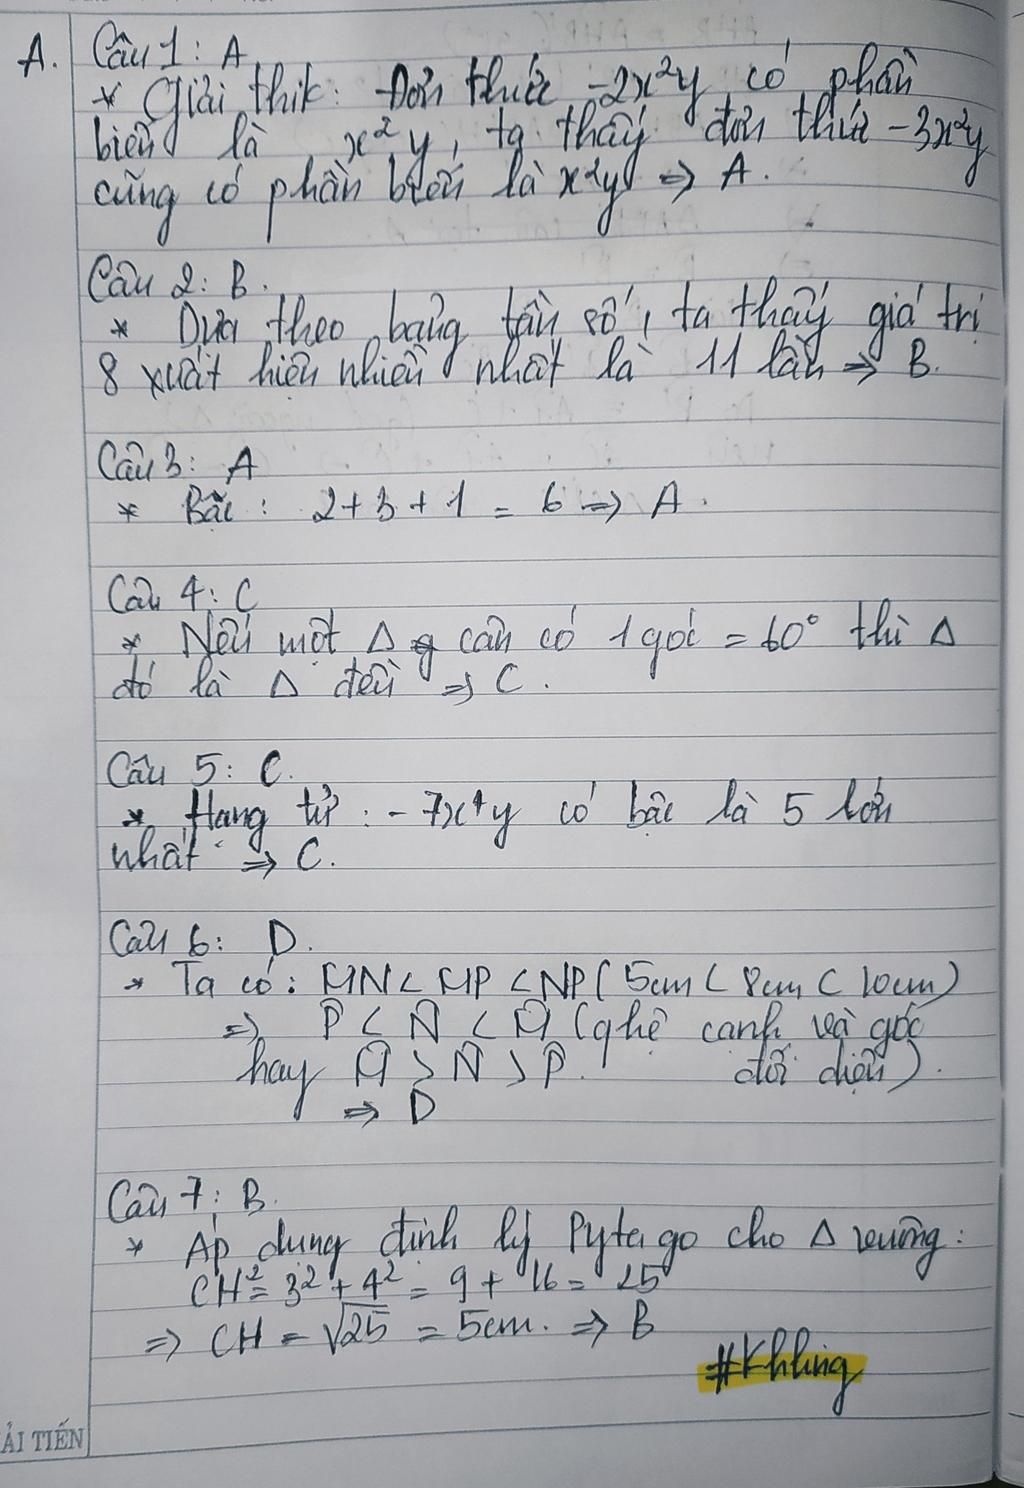 A. Câu 1: A
* Giải thik: Đơn thức -2x²y có phần
biến là x²y, ta thấy đơn thức -3x²y
cũng có phần biến là x²y => A.
Câu 2: B.
* Dựa theo bảng tần số, ta thấy giá trị
8 xuất hiện nhiều nhất là 11 lần => B.
Câu 3: A
* Bậc: 2+3+1 = 6 => A.
Câu 4: C
* Nếu một Δ cân có 1 góc = 60° thì Δ
đó là Δ đều => C.
Câu 5: C.
* Hạng tử: -7x⁴y có bậc là 5 lớn
nhất => C.
Câu 6: D.
* Ta có: MN < MP < NP (5cm < 8cm < 10cm)
=> P̂ < N̂ < M̂ (qhệ cạnh và góc
hay M̂ > N̂ > P̂. đối diện).
=> D
Câu 7: B.
* Áp dụng định lý Pytago cho Δ vuông:
CH² = 3² + 4² = 9 + 16 = 25
=> CH = √25 = 5cm. => B
#Khling
ẢI TIẾN